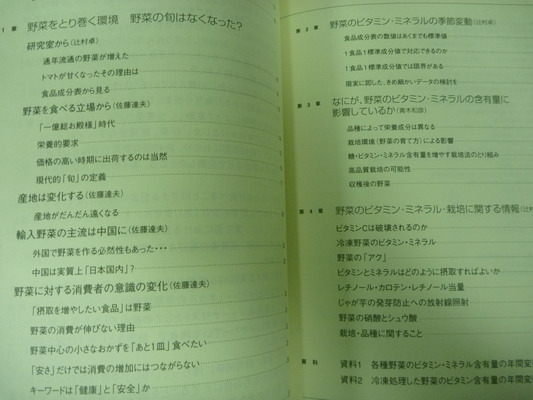 1 章 野菜をとり巻く環境 野菜の旬はなくなった?
研究室から(辻村卓)
通年流通の野菜が増えた
トマトが甘くなったその理由は
食品成分表から見る
野菜を食べる立場から(佐藤達夫)
「一億総お殿様」時代
栄養的要求
価格の高い時期に出荷するのは当然
現代的「旬」の定義
産地は変化する(佐藤達夫)
産地がだんだん遠くなる
輸入野菜の主流は中国に(佐藤達夫)
外国で野菜を作る必然性もあった・・・
中国は実質上「日本国内」?
野菜に対する消費者の意識の変化(佐藤達夫)
「摂取を増やしたい食品」は野菜
野菜の消費が伸びない理由
野菜中心の小さなおかずを「あと1皿」食べたい
「安さ」だけでは消費の増加にはつながらない
キーワードは「健康」と「安全」か
第 2 章 野菜のビタミン・ミネラルの季節変動(辻村卓)
食品成分表の数値はあくまでも標準値
1食品1標準成分値で対応できるのか
1食品1標準成分値では限界がある
現実に即した、きめ細かいデータの検討を
第 3 章 なにが、野菜のビタミン・ミネラルの含有量に
影響しているか(青木和彦)
品種によって栄養成分は異なる
栽培環境(野菜の育て方)による影響
糖・ビタミン・ミネラル含有量を増やす栽培法のとり組み
高品質栽培の可能性
収穫後の野菜
第 4 章 野菜のビタミン・ミネラル・栽培に関する情報(辻村
ビタミンCは破壊されるのか
冷凍野菜のビタミン・ミネラル
野菜の「アク」
ビタミンとミネラルはどのように摂取すればよいか
レチノール・カロテン・レチノール当量
じゃが芋の発芽防止への放射線照射
野菜の硝酸とシュウ酸
栽培・品種に関すること
資料 資料1 各種野菜のビタミン・ミネラル含有量の年間変
資料2 冷凍処理した野菜のビタミン含有量の年間変